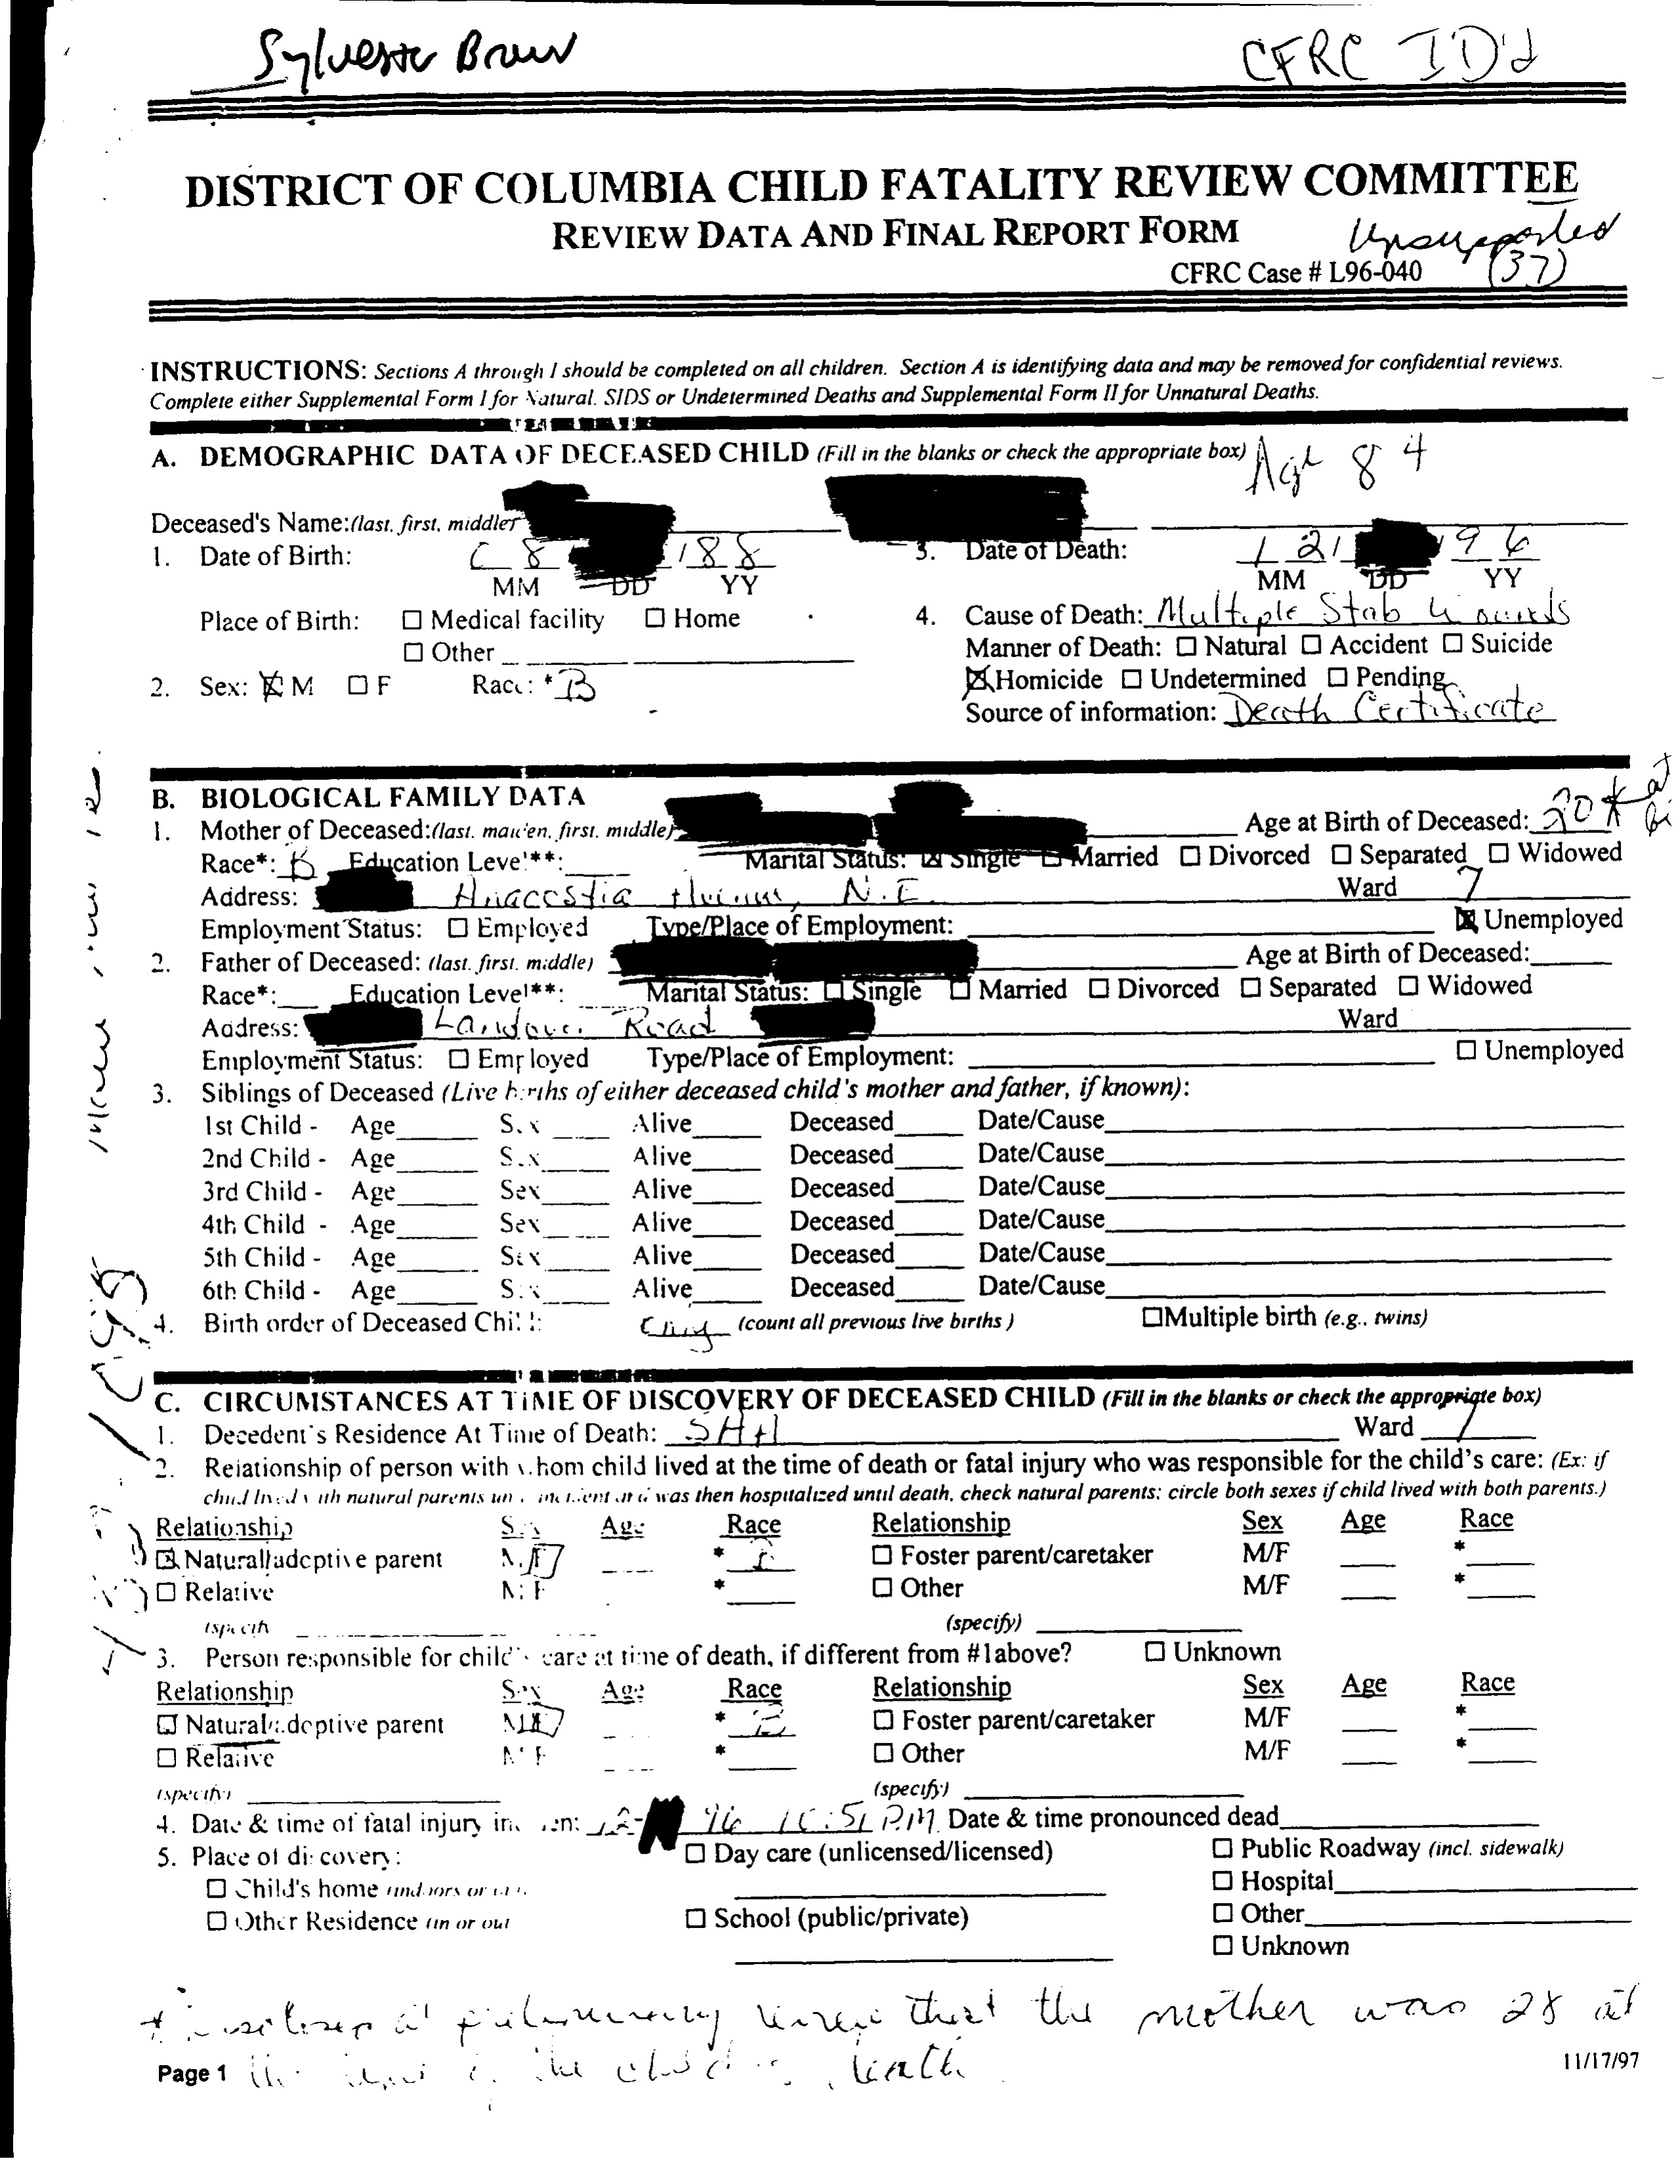 Sylvester Brown
CFRC ID'd
DISTRICT OF COLUMBIA CHILD FATALITY REVIEW COMMITTEE
REVIEW DATA AND FINAL REPORT FORM
Unsupported
CFRC Case # L96-040 (37)
INSTRUCTIONS: Sections A through I should be completed on all children. Section A is identifying data and may be removed for confidential reviews.
Complete either Supplemental Form I for Natural. SIDS or Undetermined Deaths and Supplemental Form II for Unnatural Deaths.
A. DEMOGRAPHIC DATA OF DECEASED CHILD (Fill in the blanks or check the appropriate box) Age 8 4
Deceased's Name: (last, first, middle)
1. Date of Birth: 08 / 88 3. Date of Death: 12/ 96
MM DD YY MM DD YY
Place of Birth: ☐ Medical facility ☐ Home 4. Cause of Death: Multiple Stab Wounds
☐ Other Manner of Death: ☐ Natural ☐ Accident ☐ Suicide
2. Sex: ☒ M ☐ F Race: * B ☒ Homicide ☐ Undetermined ☐ Pending
Source of information: Death Certificate
B. BIOLOGICAL FAMILY DATA
1. Mother of Deceased: (last, maiden, first, middle) Age at Birth of Deceased: 20 * at
Race*: B Education Level**: Marital Status: ☒ Single ☐ Married ☐ Divorced ☐ Separated ☐ Widowed
Address: Anacostia Avenue, N.E. Ward 7
Employment Status: ☐ Employed Type/Place of Employment: ☒ Unemployed
2. Father of Deceased: (last, first, middle) Age at Birth of Deceased:
Race*: Education Level**: Marital Status: ☐ Single ☐ Married ☐ Divorced ☐ Separated ☐ Widowed
Address: Landover Road Ward
Employment Status: ☐ Employed Type/Place of Employment: ☐ Unemployed
3. Siblings of Deceased (Live births of either deceased child's mother and father, if known):
1st Child - Age Sex Alive Deceased Date/Cause
2nd Child - Age Sex Alive Deceased Date/Cause
3rd Child - Age Sex Alive Deceased Date/Cause
4th Child - Age Sex Alive Deceased Date/Cause
5th Child - Age Sex Alive Deceased Date/Cause
6th Child - Age Sex Alive Deceased Date/Cause
4. Birth order of Deceased Child: Only (count all previous live births) ☐ Multiple birth (e.g., twins)
C. CIRCUMSTANCES AT TIME OF DISCOVERY OF DECEASED CHILD (Fill in the blanks or check the appropriate box)
1. Decedent's Residence At Time of Death: Ward 7
2. Relationship of person with whom child lived at the time of death or fatal injury who was responsible for the child's care: (Ex: if
child lived with natural parents until incident and was then hospitalized until death, check natural parents; circle both sexes if child lived with both parents.)
Relationship Sex Age Race Relationship Sex Age Race
☒ Natural/adoptive parent M/F * B ☐ Foster parent/caretaker M/F *
☐ Relative M/F * ☐ Other M/F *
(specify) (specify)
3. Person responsible for child's care at time of death, if different from #1 above? ☐ Unknown
Relationship Sex Age Race Relationship Sex Age Race
☐ Natural/adoptive parent M/F * B ☐ Foster parent/caretaker M/F *
☐ Relative M/F * ☐ Other M/F *
(specify) (specify)
4. Date & time of fatal injury incident: 12- 96 10:51 P.M. Date & time pronounced dead
5. Place of discovery: ☐ Day care (unlicensed/licensed) ☐ Public Roadway (incl. sidewalk)
☐ Child's home (indoors or ☐ Hospital
☐ Other Residence (in or out ☐ School (public/private) ☐ Other
☐ Unknown
* at preliminary review that the mother was 28 at
the time of the child's death
Page 1 11/17/97